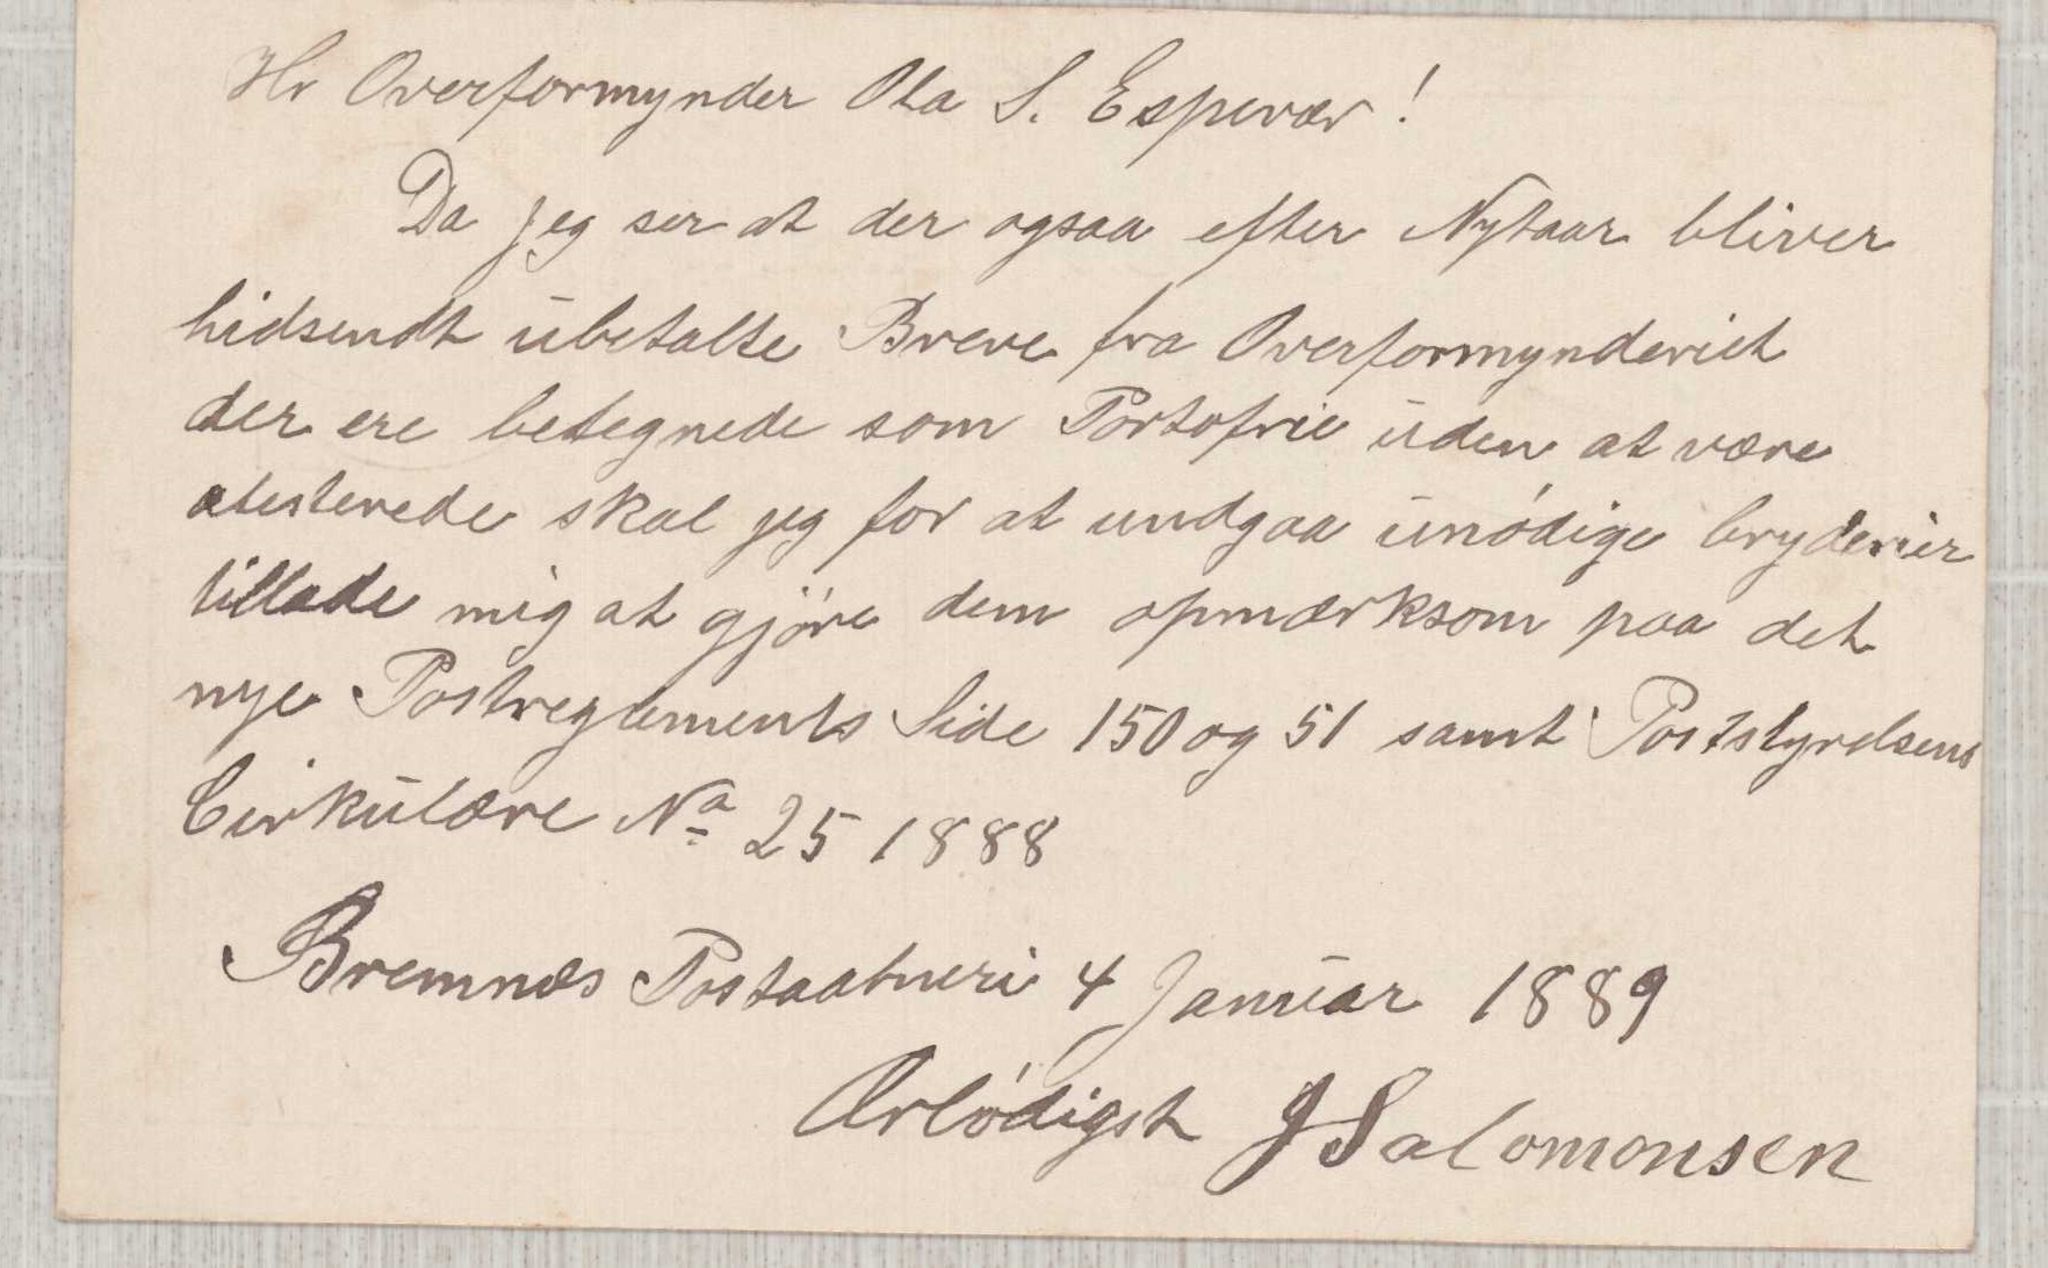 Hr Overformynder Ola S. Espevær!
Da jeg ser at der ogsaa efter Nytaar bliver
hidsendt ubetalte Breve fra Overformynderiet
der ere betegnede som Portofrie uden at være
atesterede skal jeg for at undgaa unødige bryderier
tillade mig at gjöre dem opmærksom paa det
nye Postreglements Side 150 og 51 samt Poststyrelsens
Cirkulære No 25 1888
Bremnæs Postaabneri 4 Januar 1889
Ærbødigst J Salomonsen